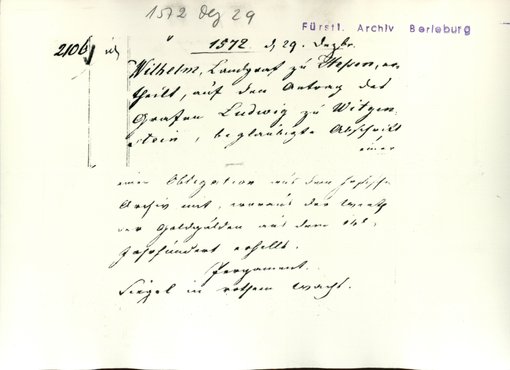 1572 Dez 29
Fürstl. Archiv Berleburg
2106
1572. d. 29. Dezbr.
Wilhelm, Landgraf zu Hessen, er
theilt, auf den Antrag des
Grafen Ludwig zu Witgen
stein, beglaubigte Abschrift
einer
einer Obligation aus dem
Archiv mit, woraus der Werth
der Goldgülden aus dem
Jahrhundert erhellt.
Pergament.
Siegel in rothem Wachs.